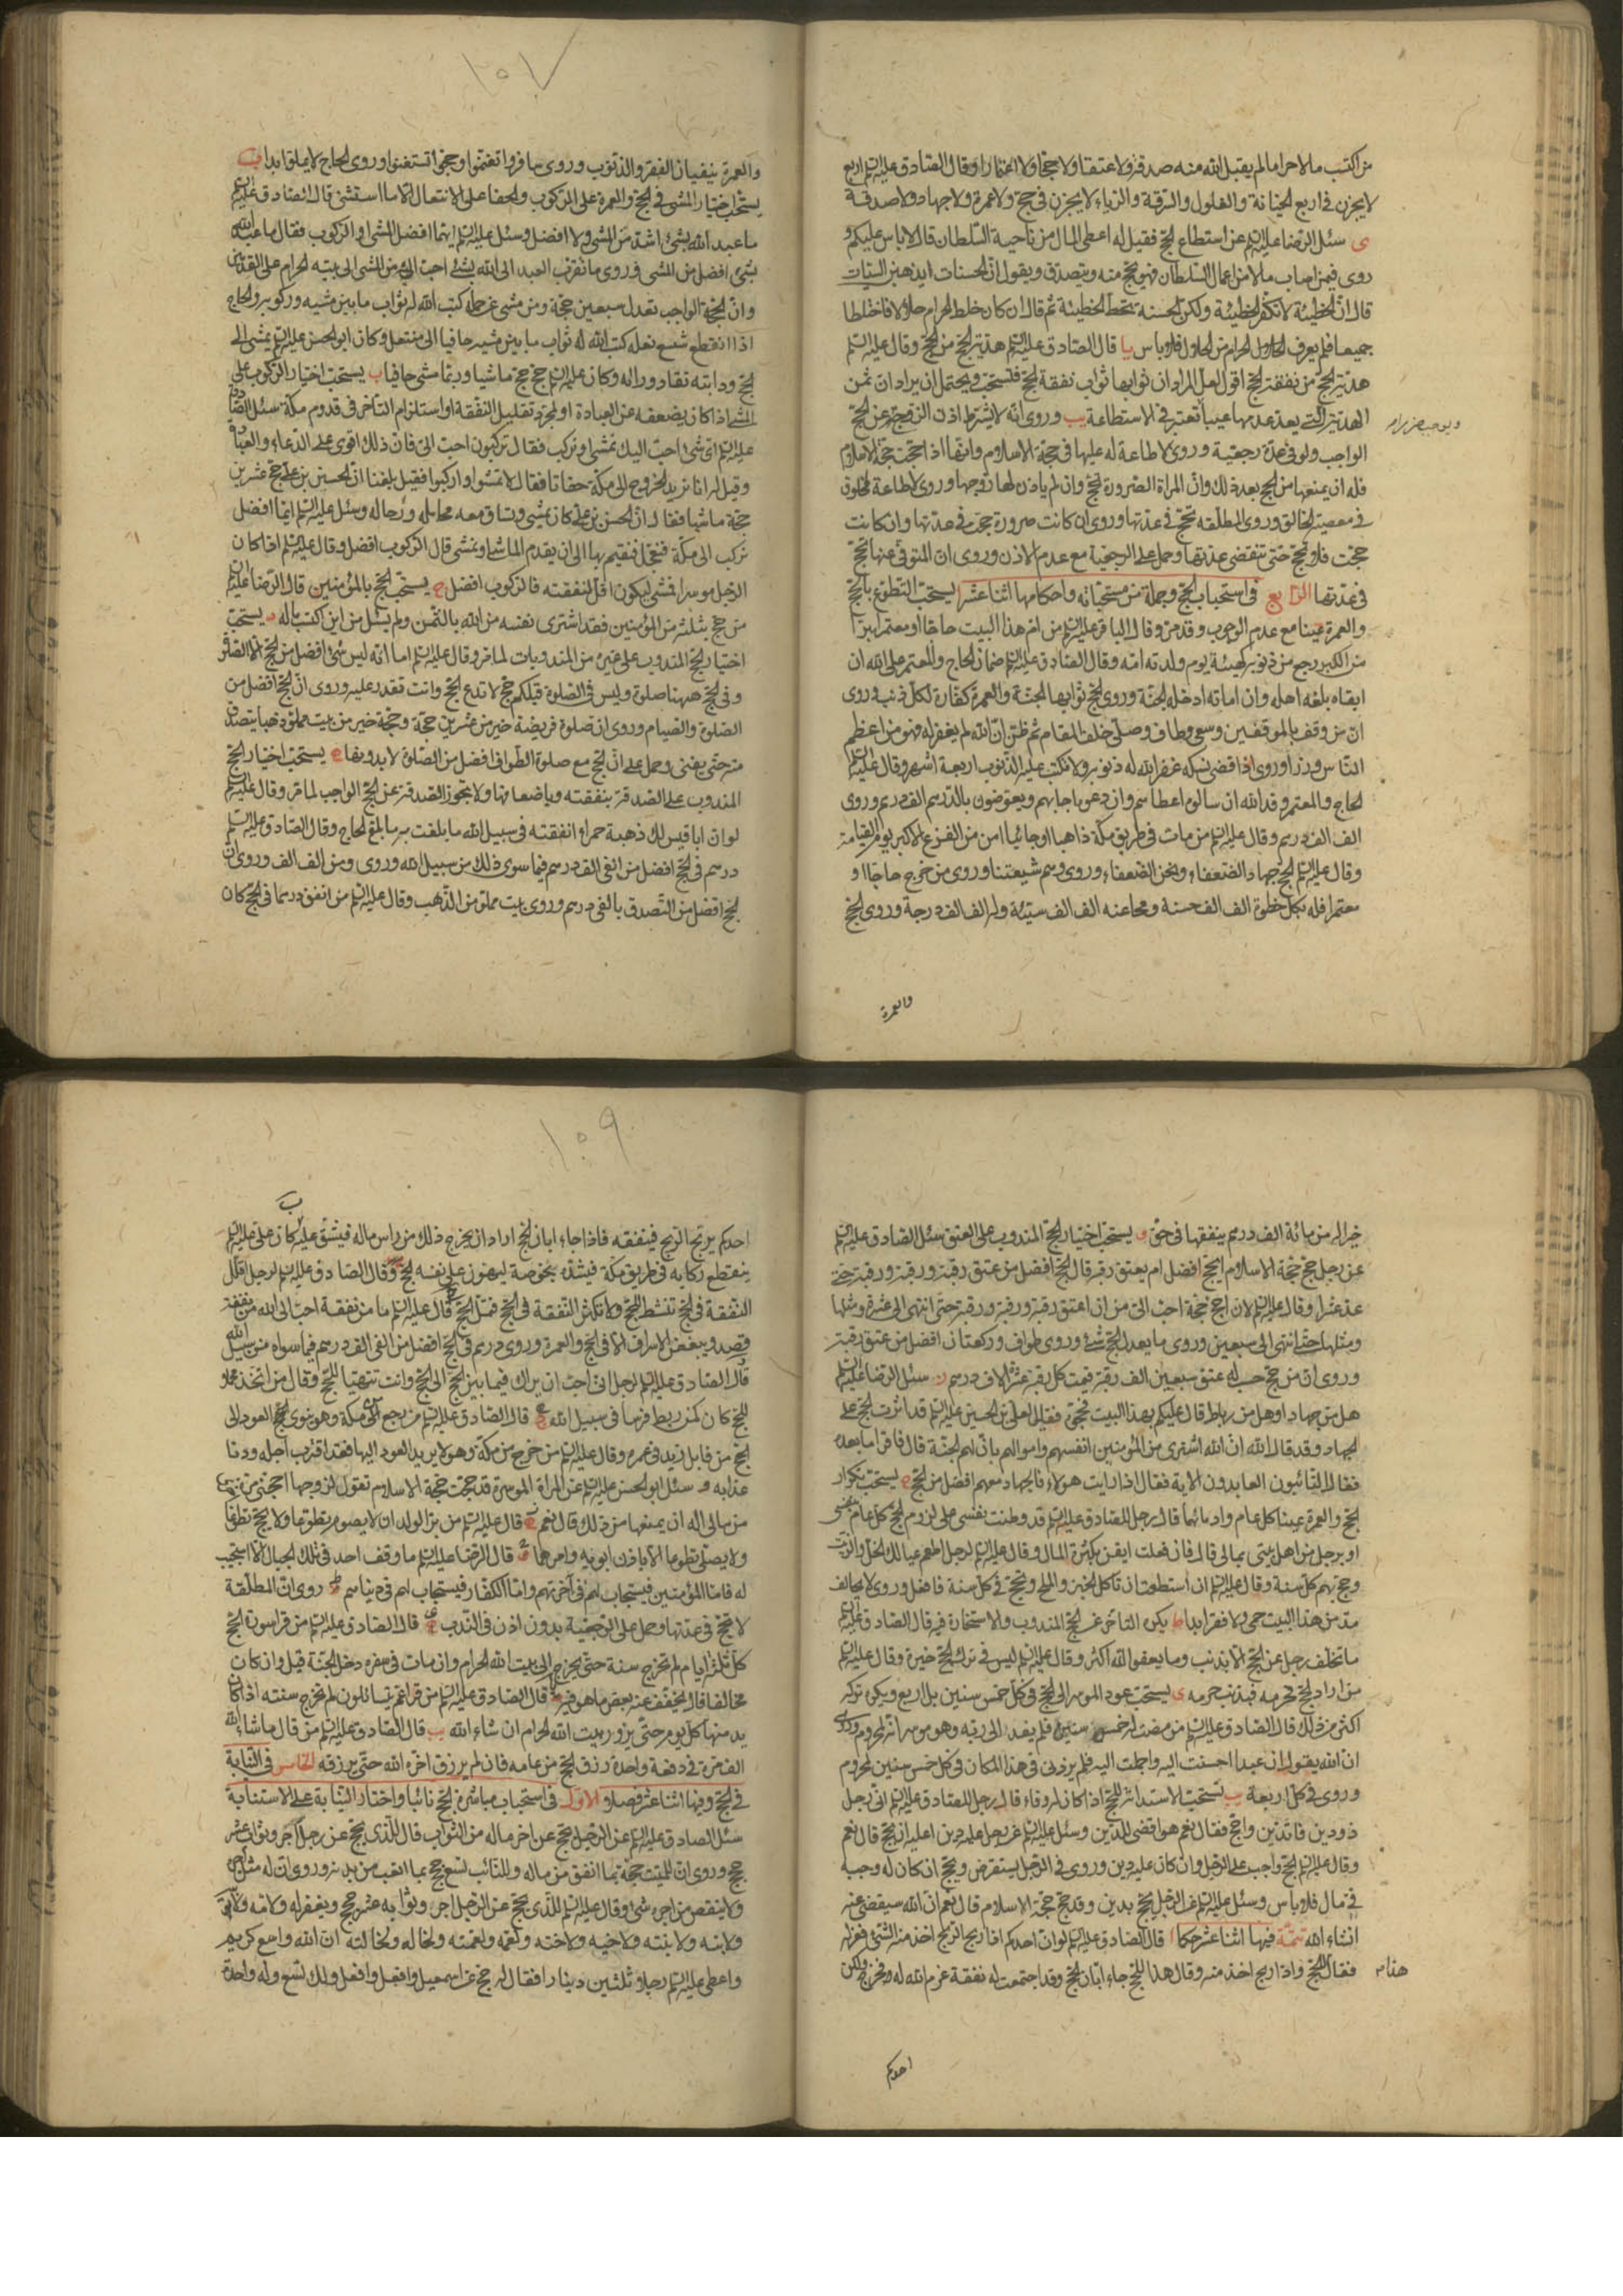 من اكتسب مالا حراما لم يقبل الله منه صدقة ولا عتقا ولا حجا ولا اعتمارا وقال الصادق عليه السلم اربع
لا يجزن في اربع الخيانة والغلول والسرقة والرياء لا يجزن في حج ولا عمرة ولا جهاد ولا صدقة
ى سئل الرضا عليه السلم عن استطاع الحج فقيل له اعطى المال من ناحية السلطان قال لا باس عليكم و
روى فيمن اصاب مالا من اعمال السلطان فهو يحج منه ويتصدق ويقول ان الحسنات يذهبن السيئات
قال ان الخطيئة لا تكفر الخطيئة ولكن الحسنة تحط الخطيئة ثم قال ان كان خلط الحرام حلالا فاختلطا
جميعا فلم يعرف الحلال من الحرام فلا باس يا قال الصادق عليه السلم هدية الحج من الحج وقال عليه السلم
هدية الحج من نفقة الحج اقول لعل المراد ان ثوابها ثواب نفقة الحج فتستحب ويحتمل ان يراد ان ثمن
الهدية التي يعد عدمها عيبا تعتبر في الاستطاعة يب وروى انه لا يشترط اذن الزوج في الحج
الواجب ولو في عدة رجعية وروى لا طاعة له عليها في حجة الاسلام وانها اذا حجت حجة الاسلام
فله ان يمنعها من الحج بعد ذلك وان المراة الصرورة تحج وان لم ياذن لها زوجها وروى لا طاعة لمخلوق
في معصية الخالق وروى المطلقة تحج في عدتها وروى ان كانت صرورة حجت في عدتها وان كانت
حجت فلا تحج حتى تنقضي عدتها وحمل على الرجعية مع عدم الاذن وروى ان المتوفى عنها تحج
في عدتها الرابع في استحباب الحج وجملة من مستحباته واحكامها اثنا عشر ا يستحب التطوع بالحج
والعمرة عينا مع عدم الوجوب وقد مر وقال الباقر عليه السلم من ام هذا البيت حاجا او معتمرا مبرا
من الكبر رجع من ذنوبه كهيئة يوم ولدته امه وقال الصادق عليه السلم ضمان الحاج والمعتمر على الله ان
ابقاه بلغه اهله وان اماته ادخله الجنة وروى الحج ثوابها الجنة والعمرة كفارة لكل ذنب وروى
ان من وقف بالموقفين وسعى وطاف وصلى خلف المقام ثم ظن ان الله لم يغفر له فهو من اعظم
الناس وزرا وروى اذا قضى نسكه غفر الله له ذنوبه ولا تكتب عليه الذنوب اربعة اشهر وقال عليه السلم
الحاج والمعتمر وفد الله ان سالوه اعطاهم وان دعوه اجابهم ويعوضون بالدرهم الف درهم وروى
الف الف درهم وقال عليه السلم من مات في طريق مكة ذاهبا او جائيا امن من الفزع الاكبر يوم القيامة
وقال عليه السلم الحج جهاد الضعفاء ونحن الضعفاء وروى وهم شيعتنا وروى من خرج حاجا او
معتمرا فله بكل خطوة الف الف حسنة ومحا عنه الف الف سيئة وله الف الف درجة وروى الحج
والعمرة
١٠٧
والعمرة ينفيان الفقر والذنوب وروى سافروا تغنموا وحجوا تستغنوا وروى الحاج لا يملق ابدا ب
يستحب اختيار المشي في الحج والعمرة على الركوب والحفا على الانتعال الا ما استثنى قال الصادق عليه السلم
ما عبد الله بشئ اشد من المشي ولا افضل وسئل عليه السلم ايما افضل المشي او الركوب فقال ما عبد الله
بشئ افضل من المشي وروى ما تقرب العبد الى الله بشئ احب اليه من المشي الى بيته الحرام على القدمين
وان الحجة الواجب تعدل سبعين حجة ومن مشى عن جمله كتب الله له ثواب ما بين مشيه وركوبه والحاج
اذا انقطع شسع نعله كتب الله له ثواب ما بين مشيه حافيا الى منتعل وكان ابو الحسن عليه السلم يمشي الى
الحج ودابته تقاد وراءه وكان عليه السلم حج حجة ماشيا وربما مشى حافيا ب يستحب اختيار الركوب على
المشي اذا كان يضعفه عن العبادة او لمجرد تقليل النفقة او استلزام التاخر في قدوم مكة سئل الصادق
عليه السلم اى شئ احب اليك نمشي او نركب فقال تركبون احب الى فان ذلك اقوى على الدعاء والعبادة
وقيل له انا نريد الخروج الى مكة حفاتا فقال لا تمشوا واركبوا فقيل بلغنا ان الحسين بن علي حج عشرين
حجة ماشيا فقال ان الحسن بن علي كان يمشي وتساق معه محامله ورحاله وسئل عليه السلم ايما افضل
نركب الى مكة فنعجل فنقيم بها الى ان يقدم الماشي او نمشي قال الركوب افضل وقال عليه السلم اذا كان
الرجل موسرا فمشى ليكون اقل لنفقته فالركوب افضل ج يستحب الحج بالمؤمنين قال الرضا عليه السلم
من حج بثلثة من المؤمنين فقد اشترى نفسه من الله بالثمن ولم يسئل من اين اكتسب ماله د يستحب
اختيار الحج المندوب على غيره من المندوبات لما مر وقال عليه السلم اما انه ليس شئ افضل من الحج الا الصلوة
وفي الحج ههنا صلوة وليس في الصلوة قبلكم حج لا تدع الحج وانت تقدر عليه وروى ان الحج افضل من
الصلوة والصيام وروى ان صلوة فريضة خير من عشرين حجة وحجة خير من بيت مملو ذهبا يتصدق
منه حتى يفنى وحمل على ان الحج مع صلوة الطواف افضل من الصلاة لا بدونها ه يستحب اختيار الحج
المندوب على الصدقة بنفقته وباضعافها ولا تجوز الصدقة عن الحج الواجب لما مر وقال عليه السلم
لو ان ابا قبيس لك ذهبة حمراء انفقته في سبيل الله ما بلغت به ما بلغ الحاج وقال الصادق عليه السلم
درهم في الحج افضل من الفي الف درهم فيما سوى ذلك من سبيل الله وروى ومن الف الف وروى ان
الحج افضل من التصدق بالفي درهم وروى بيت مملو من الذهب وقال عليه السلم من انفق درهما في الحج كان
خيرا له من مائة الف درهم ينفقها في حق و يستحب اختيار الحج المندوب على العتق سئل الصادق عليه السلم
عن رجل حج حجة الاسلام ايحج افضل ام يعتق رقبة قال الحج افضل من عتق رقبة ورقبة ورقبة حتى
عد عشرا وقال عليه السلم لان احج حجة احب الى من ان اعتق رقبة ورقبة ورقبة حتى انتهى الى عشرة ومثلها
ومثلها حتى انتهى الى سبعين وروى ما يعدل الحج شئ وروى طواف وركعتان افضل من عتق رقبة
وروى ان من حج حسب له عتق سبعين الف رقبة قيمة كل رقبة عشرة الاف درهم ز سئل الرضا عليه السلم
هل من جهاد او هل من رباط قال عليكم بهذا البيت فحجوه فقيل لعلي بن الحسين عليه السلم قد اثرت الحج على
الجهاد وقد قال الله ان الله اشترى من المؤمنين انفسهم واموالهم بان لهم الجنة قال فاقرا ما بعده
فقال التائبون العابدون الاية فقال اذا رايت هولاء فالجهاد معهم افضل من الحج ح يستحب تكرار
الحج والعمرة عينا كل عام وادمانها قال رجل للصادق عليه السلم قد وطنت نفسي على لزوم الحج كل عام بنفسي
او برجل من اهل بيتي بمالي قال فان فعلت ايقن بكثرة المال وقال عليه السلم لرجل اطعم عيالك الخل والزيت
وحج بهم كل سنة وقال عليه السلم ان استطعت ان تاكل الخبز والملح وتحج في كل سنة فافعل وروى لا يحالف
مدمن هذا البيت حمى ولا فقر ابدا ط يكره التاخر عن الحج المندوب والاستخارة فيه قال الصادق عليه السلم
ما تخلف رجل عن الحج الا بذنب وما يعفو الله اكثر وقال عليه السلم ليس في ترك الحج خيرة وقال عليه السلم
من اراد الحج فحرمه فبذنب حرمه ى يستحب عود الموسر الى الحج في كل خمس سنين بل اربع ويكره تركه
اكثر من ذلك قال الصادق عليه السلم من مضت له خمس سنين فلم يفد الى ربه وهو موسر انه لمحروم وروى
ان الله يقول ان عبدا احسنت اليه واجملت اليه فلم يزرني في هذا المكان في كل خمس سنين لمحروم
وروى في كل اربعة يب تستحب الاستدانة للحج اذا كان له وفاء قال رجل للصادق عليه السلم اني رجل
ذو دين فاتدين واحج فقال نعم هو اقضى للدين وسئل عليه السلم عن رجل عليه دين اعليه ان يحج قال نعم
وقال عليه السلم الحج واجب على الرجل وان كان عليه دين وروى في الرجل يستقرض ويحج ان كان له وجه
في مال فلا باس وسئل عليه السلم عن الرجل يحج بدين وقد حج حجة الاسلام قال نعم ان الله سيقضي عنه
انشاء الله تتمة فيها اثنا عشر حكما ا قال الصادق عليه السلم لو ان احدكم اذا ربح الربح اخذ منه الشئ فعزله
فقال للحج واذا ربح اخذ منه وقال هذا للحج جاء ابان الحج وقد اجتمعت له نفقة عزم الله له فخرج ولكن
هذا
احدكم
١٠٩
احدكم يربح الربح فينفقه فاذا جاء ابان الحج اراد ان يخرج ذلك من راس ماله فيشق عليه ب كان علي عليه السلم
ينقطع ركابه في طريق مكة فيشده بخوصة ليهون على نفسه الحج وقال الصادق عليه السلم لرجل اقلل
النفقة في الحج تنشط للحج ولا تكثر النفقة في الحج فتمل الحج قال عليه السلم ما من نفقة احب الى الله من نفقة
قصد ويبغض الاسراف الا في الحج والعمرة وروى درهم في الحج افضل من الفي الف درهم فيما سواه من سبيل الله
قال الصادق عليه السلم لرجل اني احب ان يراك فيما بين الحج الى الحج وانت تتهيا للحج وقال من اتخذ محملا
للحج كان كمن ربط فرسا في سبيل الله قال الصادق عليه السلم من رجع من مكة وهو ينوي الحج العود الى
الحج من قابل زيد في عمره وقال عليه السلم من خرج من مكة وهو لا يريد العود اليها فقد اقترب اجله ودنا
عذابه و سئل ابو الحسن عليه السلم عن المراة الموسرة قد حجت حجة الاسلام تقول لزوجها احجني مرة اخرى
من مالي اله ان يمنعها من ذلك قال نعم قال عليه السلم من بر الولد ان لا يصوم تطوعا ولا يحج تطوعا
ولا يصلي تطوعا الا باذن ابويه وامرهما قال الرضا عليه السلم ما وقف احد في تلك الجبال الا استجيب
له فاما المؤمنين فيستجاب لهم في آخرتهم واما الكفار فيستجاب لهم في دنياهم ط روى ان المطلقة
لا تحج في عدتها وحمل على الرجعية بدون اذن في الندب ى قال الصادق عليه السلم من قرا سورة الحج
كل ثلثة ايام لم تخرج سنة حتى يخرج الى بيت الله الحرام وان مات في سفره دخل الجنة قيل وان كان
مخالفا قال يخفف عنه بعض ما هو فيه قال الصادق عليه السلم من قرا عم يتسائلون لم تخرج سنته اذا كان
يدمنها كل يوم حتى يزور بيت الله الحرام ان شاء الله يب قال الصادق عليه السلم من قال ما شاء الله
الف مرة في دفعة واحدة رزق الحج من عامه فان لم يرزق اخره الله حتى يرزقه الخامس في النيابة
في الحج وفيها اثنا عشر فصلا الاول في استحباب مباشرة الحج نائبا واختيار النيابة على الاستنابة
سئل الصادق عليه السلم عن الرجل يحج عن اخر ماله من الثواب قال للذي يحج عن رجل اجر وثواب عشر
حجج وروى ان للميت حجة بما انفق من ماله وللنائب تسع حجج بما اتعب من بدنه وروى ان له مثل اجره
ولا ينقص من اجره شئ وقال عليه السلم للذي يحج عن الرجل اجر وثوابه عشر حجج ويغفر له ولابيه ولامه
ولابنه ولابنته ولاخيه ولاخته ولعمه ولعمته ولخاله ولخالته ان الله واسع كريم
واعطى عليه السلم رجلا ثلثين دينارا فقال له حج عن اسمعيل وافعل وافعل ولك تسع وله واحدة